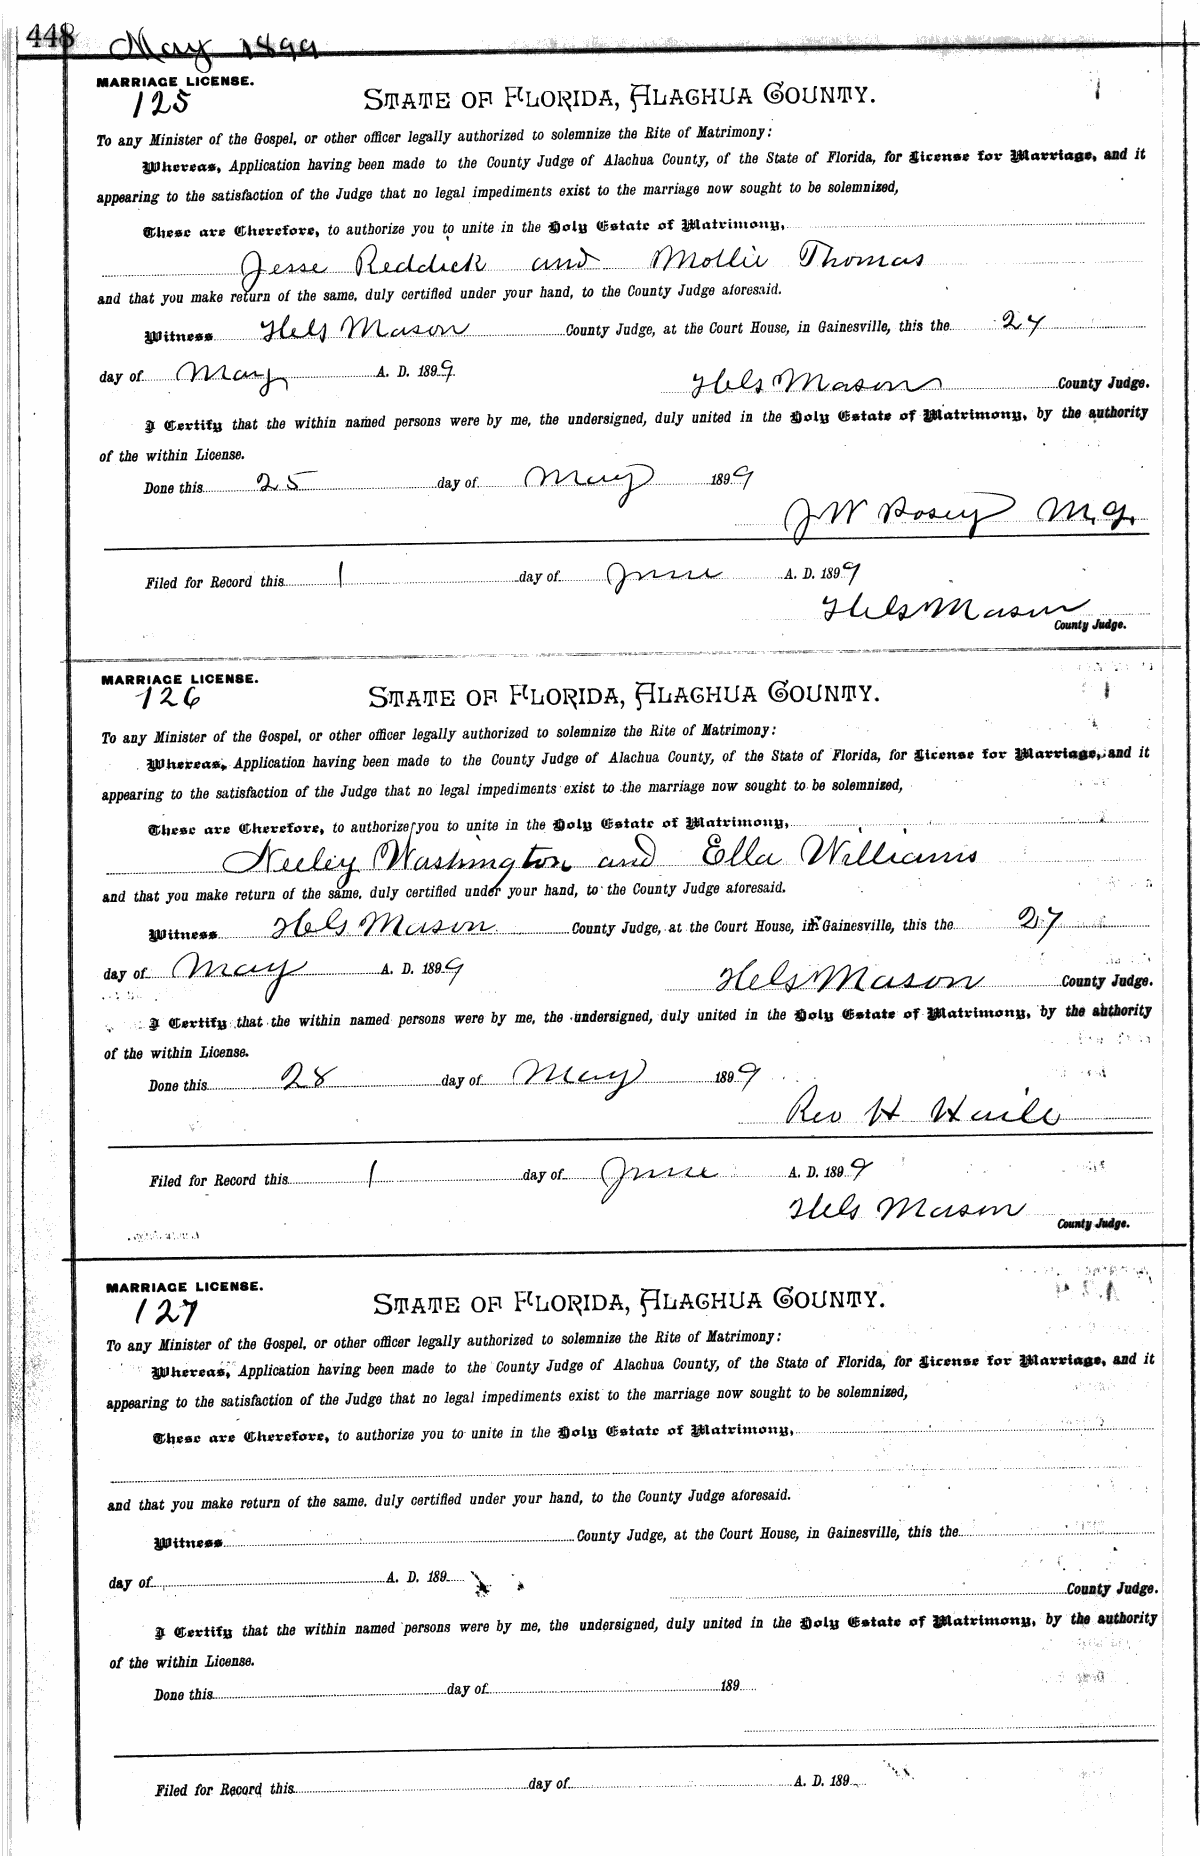 448 May 1899
MARRIAGE LICENSE.
125
STATE OF FLORIDA, ALACHUA COUNTY.
To any Minister of the Gospel, or other officer legally authorized to solemnize the Rite of Matrimony:
Whereas, Application having been made to the County Judge of Alachua County, of the State of Florida, for License for Marriage, and it
appearing to the satisfaction of the Judge that no legal impediments exist to the marriage now sought to be solemnized,
These are Therefore, to authorize you to unite in the Holy Estate of Matrimony,
Jesse Reddick and Mollie Thomas
and that you make return of the same, duly certified under your hand, to the County Judge aforesaid.
Witness Mason County Judge, at the Court House, in Gainesville, this the 24
day of May A. D. 1899
Mason County Judge.
I Certify that the within named persons were by me, the undersigned, duly united in the Holy Estate of Matrimony, by the authority
of the within License.
Done this 25 day of May 1899
J W M.G.
Filed for Record this 1 day of June A. D. 1899
Mason
County Judge.
MARRIAGE LICENSE.
126
STATE OF FLORIDA, ALACHUA COUNTY.
To any Minister of the Gospel, or other officer legally authorized to solemnize the Rite of Matrimony:
Whereas, Application having been made to the County Judge of Alachua County, of the State of Florida, for License for Marriage, and it
appearing to the satisfaction of the Judge that no legal impediments exist to the marriage now sought to be solemnized,
These are Therefore, to authorize you to unite in the Holy Estate of Matrimony,
Neeley Washington and Ella Williams
and that you make return of the same, duly certified under your hand, to the County Judge aforesaid.
Witness Mason County Judge, at the Court House, in Gainesville, this the 27
day of May A. D. 1899
Mason County Judge.
I Certify that the within named persons were by me, the undersigned, duly united in the Holy Estate of Matrimony, by the authority
of the within License.
Done this 28 day of May 1899
Rev H Haile
Filed for Record this 1 day of June A. D. 1899
Mason
County Judge.
MARRIAGE LICENSE.
127
STATE OF FLORIDA, ALACHUA COUNTY.
To any Minister of the Gospel, or other officer legally authorized to solemnize the Rite of Matrimony:
Whereas, Application having been made to the County Judge of Alachua County, of the State of Florida, for License for Marriage, and it
appearing to the satisfaction of the Judge that no legal impediments exist to the marriage now sought to be solemnized,
These are Therefore, to authorize you to unite in the Holy Estate of Matrimony,
and that you make return of the same, duly certified under your hand, to the County Judge aforesaid.
Witness County Judge, at the Court House, in Gainesville, this the
day of A. D. 189
County Judge.
I Certify that the within named persons were by me, the undersigned, duly united in the Holy Estate of Matrimony, by the authority
of the within License.
Done this day of 189
Filed for Record this day of A. D. 189